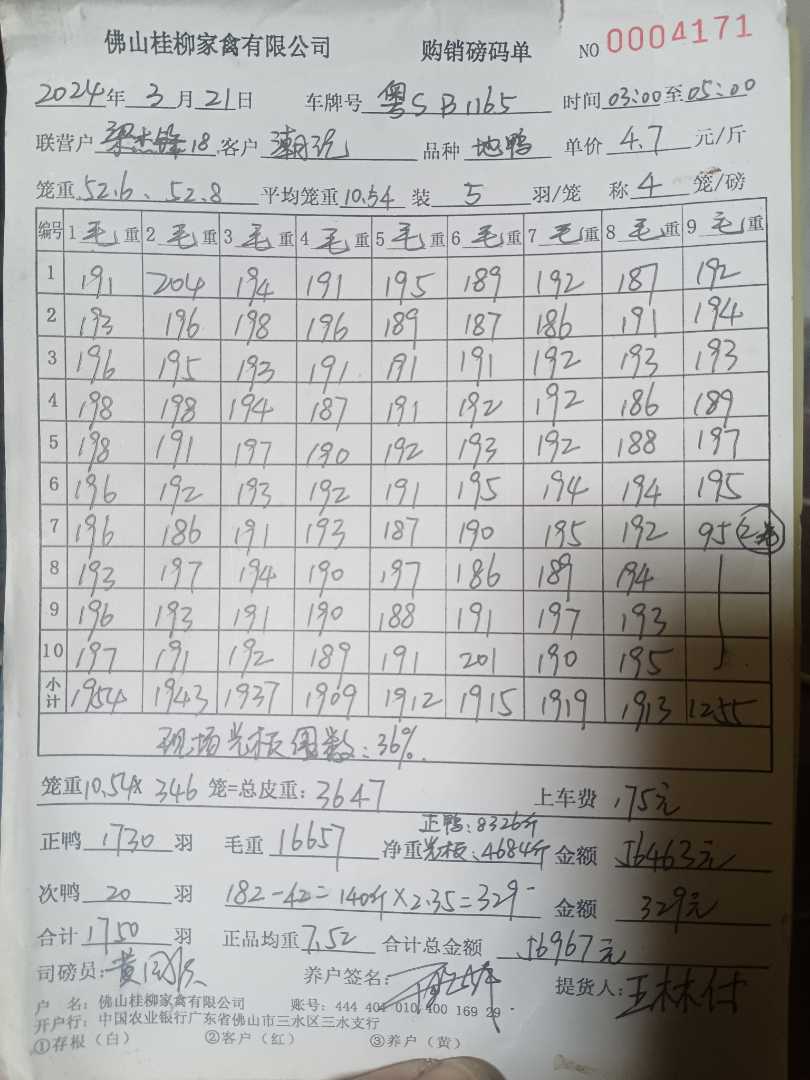 佛山桂柳家禽有限公司 购销磅码单 NO 0004171
2024年 3月21日 车牌号 粤SB1165 时间 03:00至05:00
联营户 梁杰锋18 客户 潮记 品种 地鸭 单价 4.7 元/斤
笼重 52.6、52.8 平均笼重 10.54 装 5 羽/笼 称 4 笼/磅
编号 1毛重 2毛重 3毛重 4毛重 5毛重 6毛重 7毛重 8毛重 9毛重
1 191 204 194 191 195 189 192 187 192
2 193 196 198 196 189 187 186 191 194
3 196 195 193 191 191 191 192 193 193
4 198 198 194 187 191 192 192 186 189
5 198 191 197 190 192 193 192 188 197
6 196 192 193 192 191 195 194 194 195
7 196 186 191 193 187 190 195 192 95 2笼
8 193 197 194 190 197 186 189 194
9 196 193 191 190 188 191 197 193
10 197 191 192 189 191 201 190 195
小计 1954 1943 1937 1909 1912 1915 1919 1913 1255
现场光板 数:36%.
笼重10.54× 346 笼=总皮重:3647 上车费 175元
正鸭:8326斤
正鸭 1730 羽 毛重 16657 净重 光板:4684斤 金额 56463元
次鸭 20 羽 182-42=140斤×2.35=329- 金额 329元
合计 1750 羽 正品均重 7.52 合计总金额 56967元
司磅员: 养户签名: 提货人:王林林付
户 名:佛山桂柳家禽有限公司 账号:444 401 010 400 169 29
开户行:中国农业银行广东省佛山市三水区三水支行
①存根(白) ②客户(红) ③养户(黄)